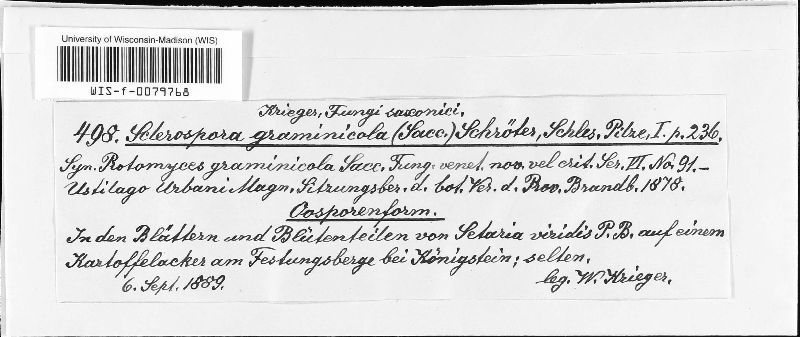 University of Wisconsin-Madison (WIS)
WIS-f-0079768
Krieger, Fungi saxonici.
498. Sclerospora graminicola (Sacc.) Schröter, Schles. Pilze, I. p. 236.
Syn. Protomyces graminicola Sacc. Fung. venet. nov. vel crit. Ser. VI. No. 91.—
Ustilago Urbani Magn. Sitzungsber. d. bot. Ver. d. Prov. Brandb. 1878.
Oosporenform.
In den Blättern und Blütenteilen von Setaria viridis P. B. auf einem
Kartoffelacker am Festungsberge bei Königstein; selten.
6. Sept. 1889. leg. W. Krieger.